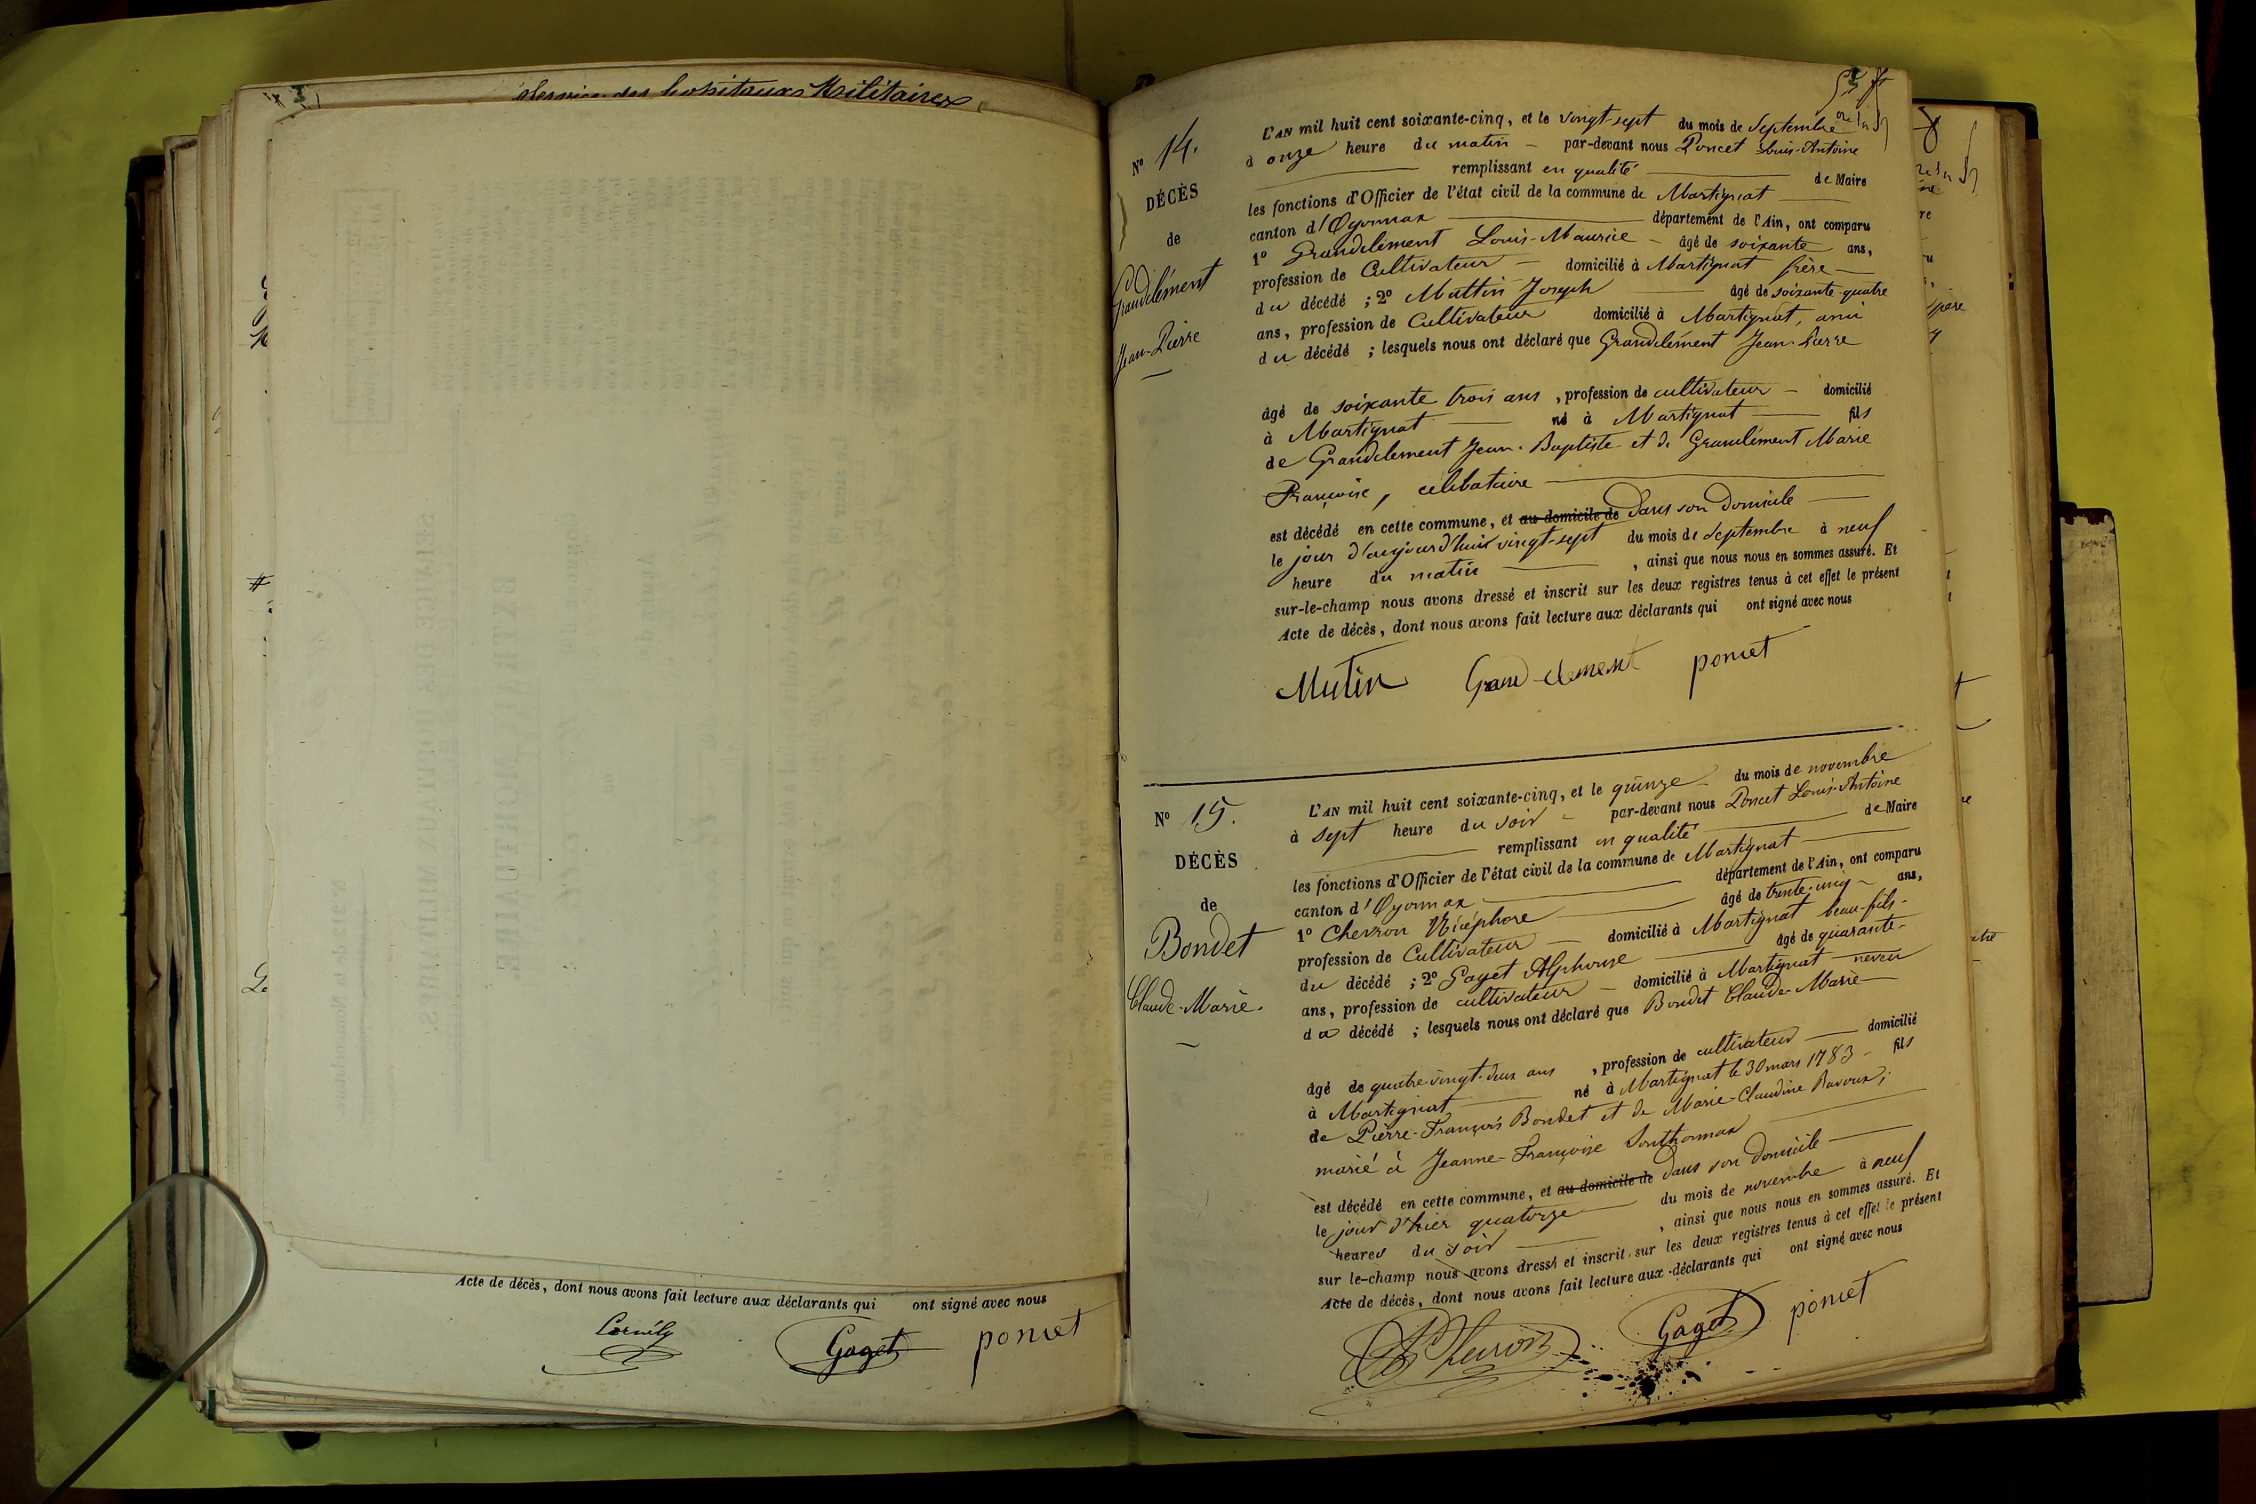 Service des hopitaux Militaires
Acte de décès, dont nous avons fait lecture aux déclarants qui ont signé avec nous
Gaget poncet
N° 14.
DÉCÈS
de
Grandclément
Jean-Pierre
L'AN mil huit cent soixante-cinq, et le vingt-sept du mois de Septembre
à onze heure du matin par-devant nous Poncet Louis-Antoine
remplissant en qualité de Maire
les fonctions d'Officier de l'état civil de la commune de Martignat
canton d'Oyonnax département de l'Ain, ont comparu
1° Grandclément Louis-Maurice âgé de soixante ans,
profession de Cultivateur domicilié à Martignat frère
du décédé ; 2° Muttin Joseph âgé de soixante-quatre
ans, profession de Cultivateur domicilié à Martignat, ami
du décédé ; lesquels nous ont déclaré que Grandclément Jean-Pierre
âgé de soixante trois ans, profession de cultivateur domicilié
à Martignat né à Martignat fils
de Grandclement Jean-Baptiste et de Grandclément Marie
Françoise, célibataire
est décédé en cette commune, et au domicile de dans son domicile
le jour d'aujourd'hui vingt-sept du mois de Septembre à neuf
heure du matin , ainsi que nous nous en sommes assuré. Et
sur-le-champ nous avons dressé et inscrit sur les deux registres tenus à cet effet le présent
Acte de décès, dont nous avons fait lecture aux déclarants qui ont signé avec nous
Mutin Grand-clement poncet
N° 15.
DÉCÈS
de
Bondet
Claude-Marie.
L'AN mil huit cent soixante-cinq, et le quinze du mois de novembre
à sept heure du soir par-devant nous Poncet Louis-Antoine
remplissant en qualité de Maire
les fonctions d'Officier de l'état civil de la commune de Martignat
canton d'Oyonnax département de l'Ain, ont comparu
1° Chevron Nicéphore âgé de trente-cinq ans,
profession de Cultivateur domicilié à Martignat beau-fils
du décédé ; 2° Gaget Alphonse âgé de quarante
ans, profession de cultivateur domicilié à Martignat neveu
du décédé ; lesquels nous ont déclaré que Bondet Claude-Marie
âgé de quatre-vingt-deux ans , profession de cultivateur domicilié
à Martignat né à Martignat le 30 mars 1783 fils
de Pierre-François Bondet et de Marie-Claudine Ravoux;
marié à Jeanne-Françoise Sonthonnax
est décédé en cette commune, et au domicile de dans son domicile
le jour d'hier quatorze du mois de novembre à neuf
heures du soir , ainsi que nous nous en sommes assuré. Et
sur le-champ nous avons dressé et inscrit sur les deux registres tenus à cet effet le présent
Acte de décès, dont nous avons fait lecture aux déclarants qui ont signé avec nous
Gaget poncet